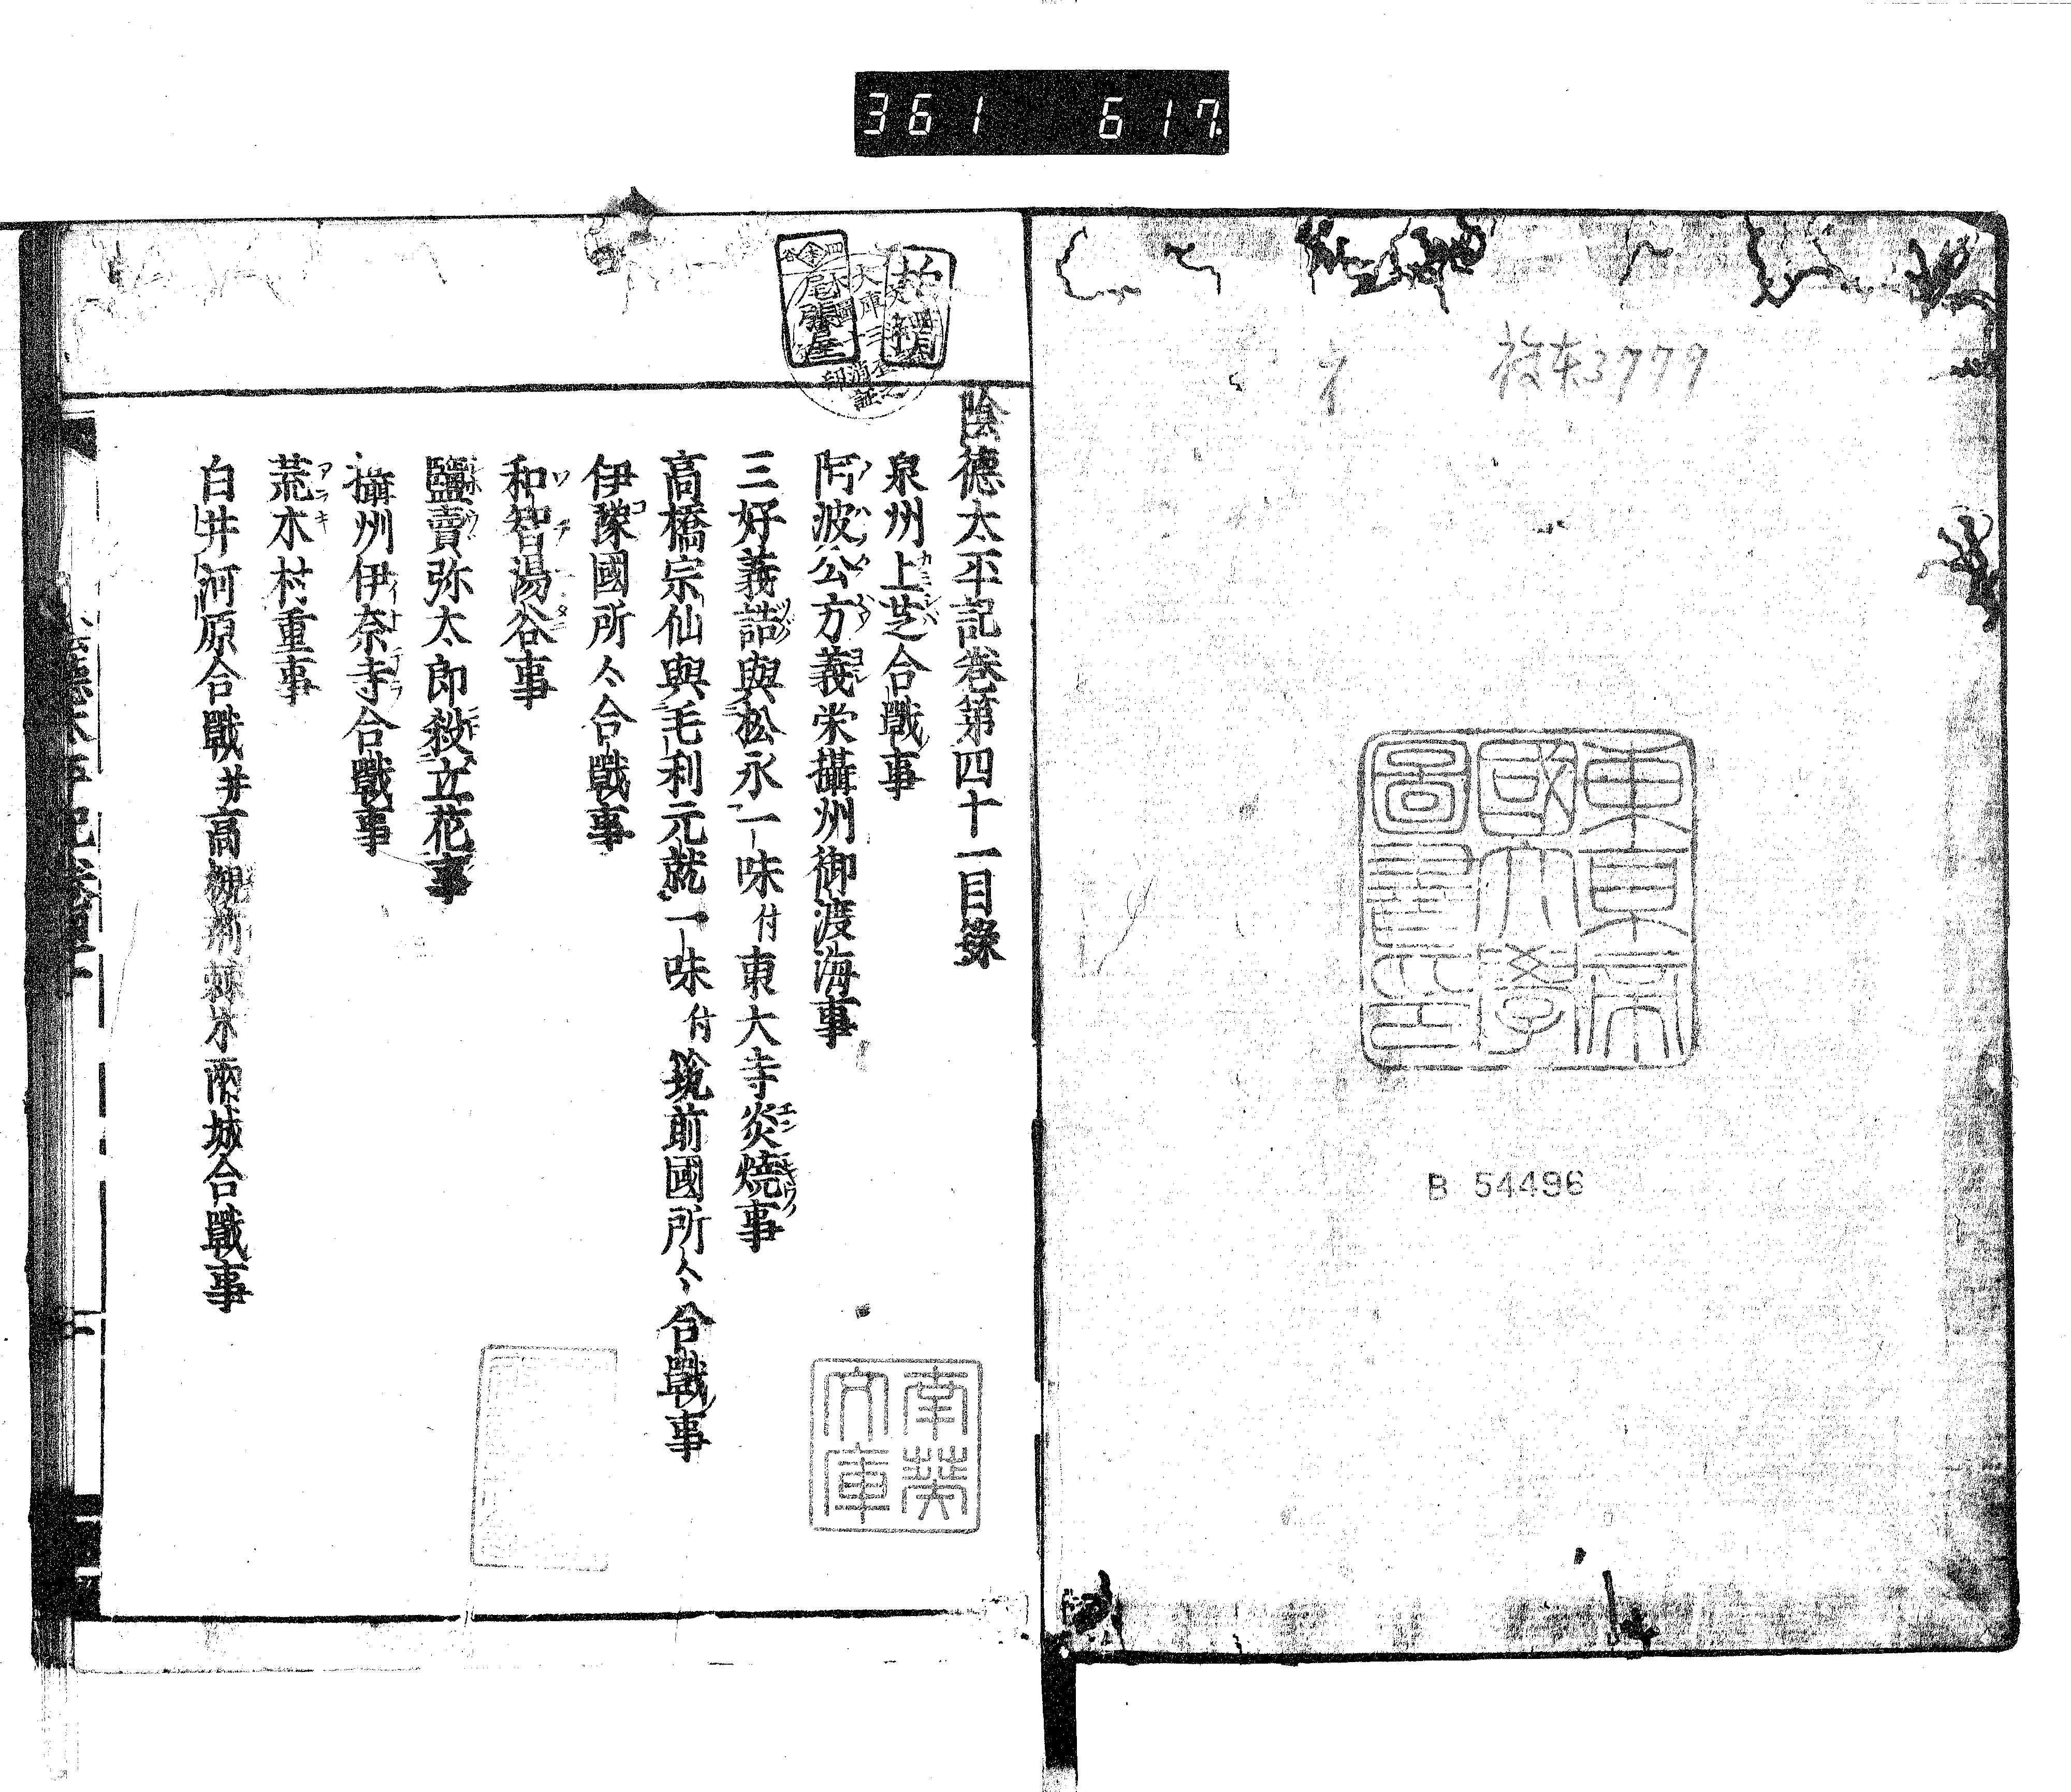 361 617
被东3779
東京帝
國大學
圖書印
B 54496
陰德太平記卷第四十一目錄
泉州上芝合戰事
阿波公方義栄攝州御渡海事
三好義誥與松永一味付東大寺炎燒事
高橋宗仙與毛利元就一味付筑前國所々合戰事
伊豫國所々合戰事
和智湯谷事
鹽賣弥太郎殺立花事
攝州伊奈寺合戰事
荒木村重事
白井河原合戰并高槻茨木兩城合戰事
尾張屋
南葵
文庫